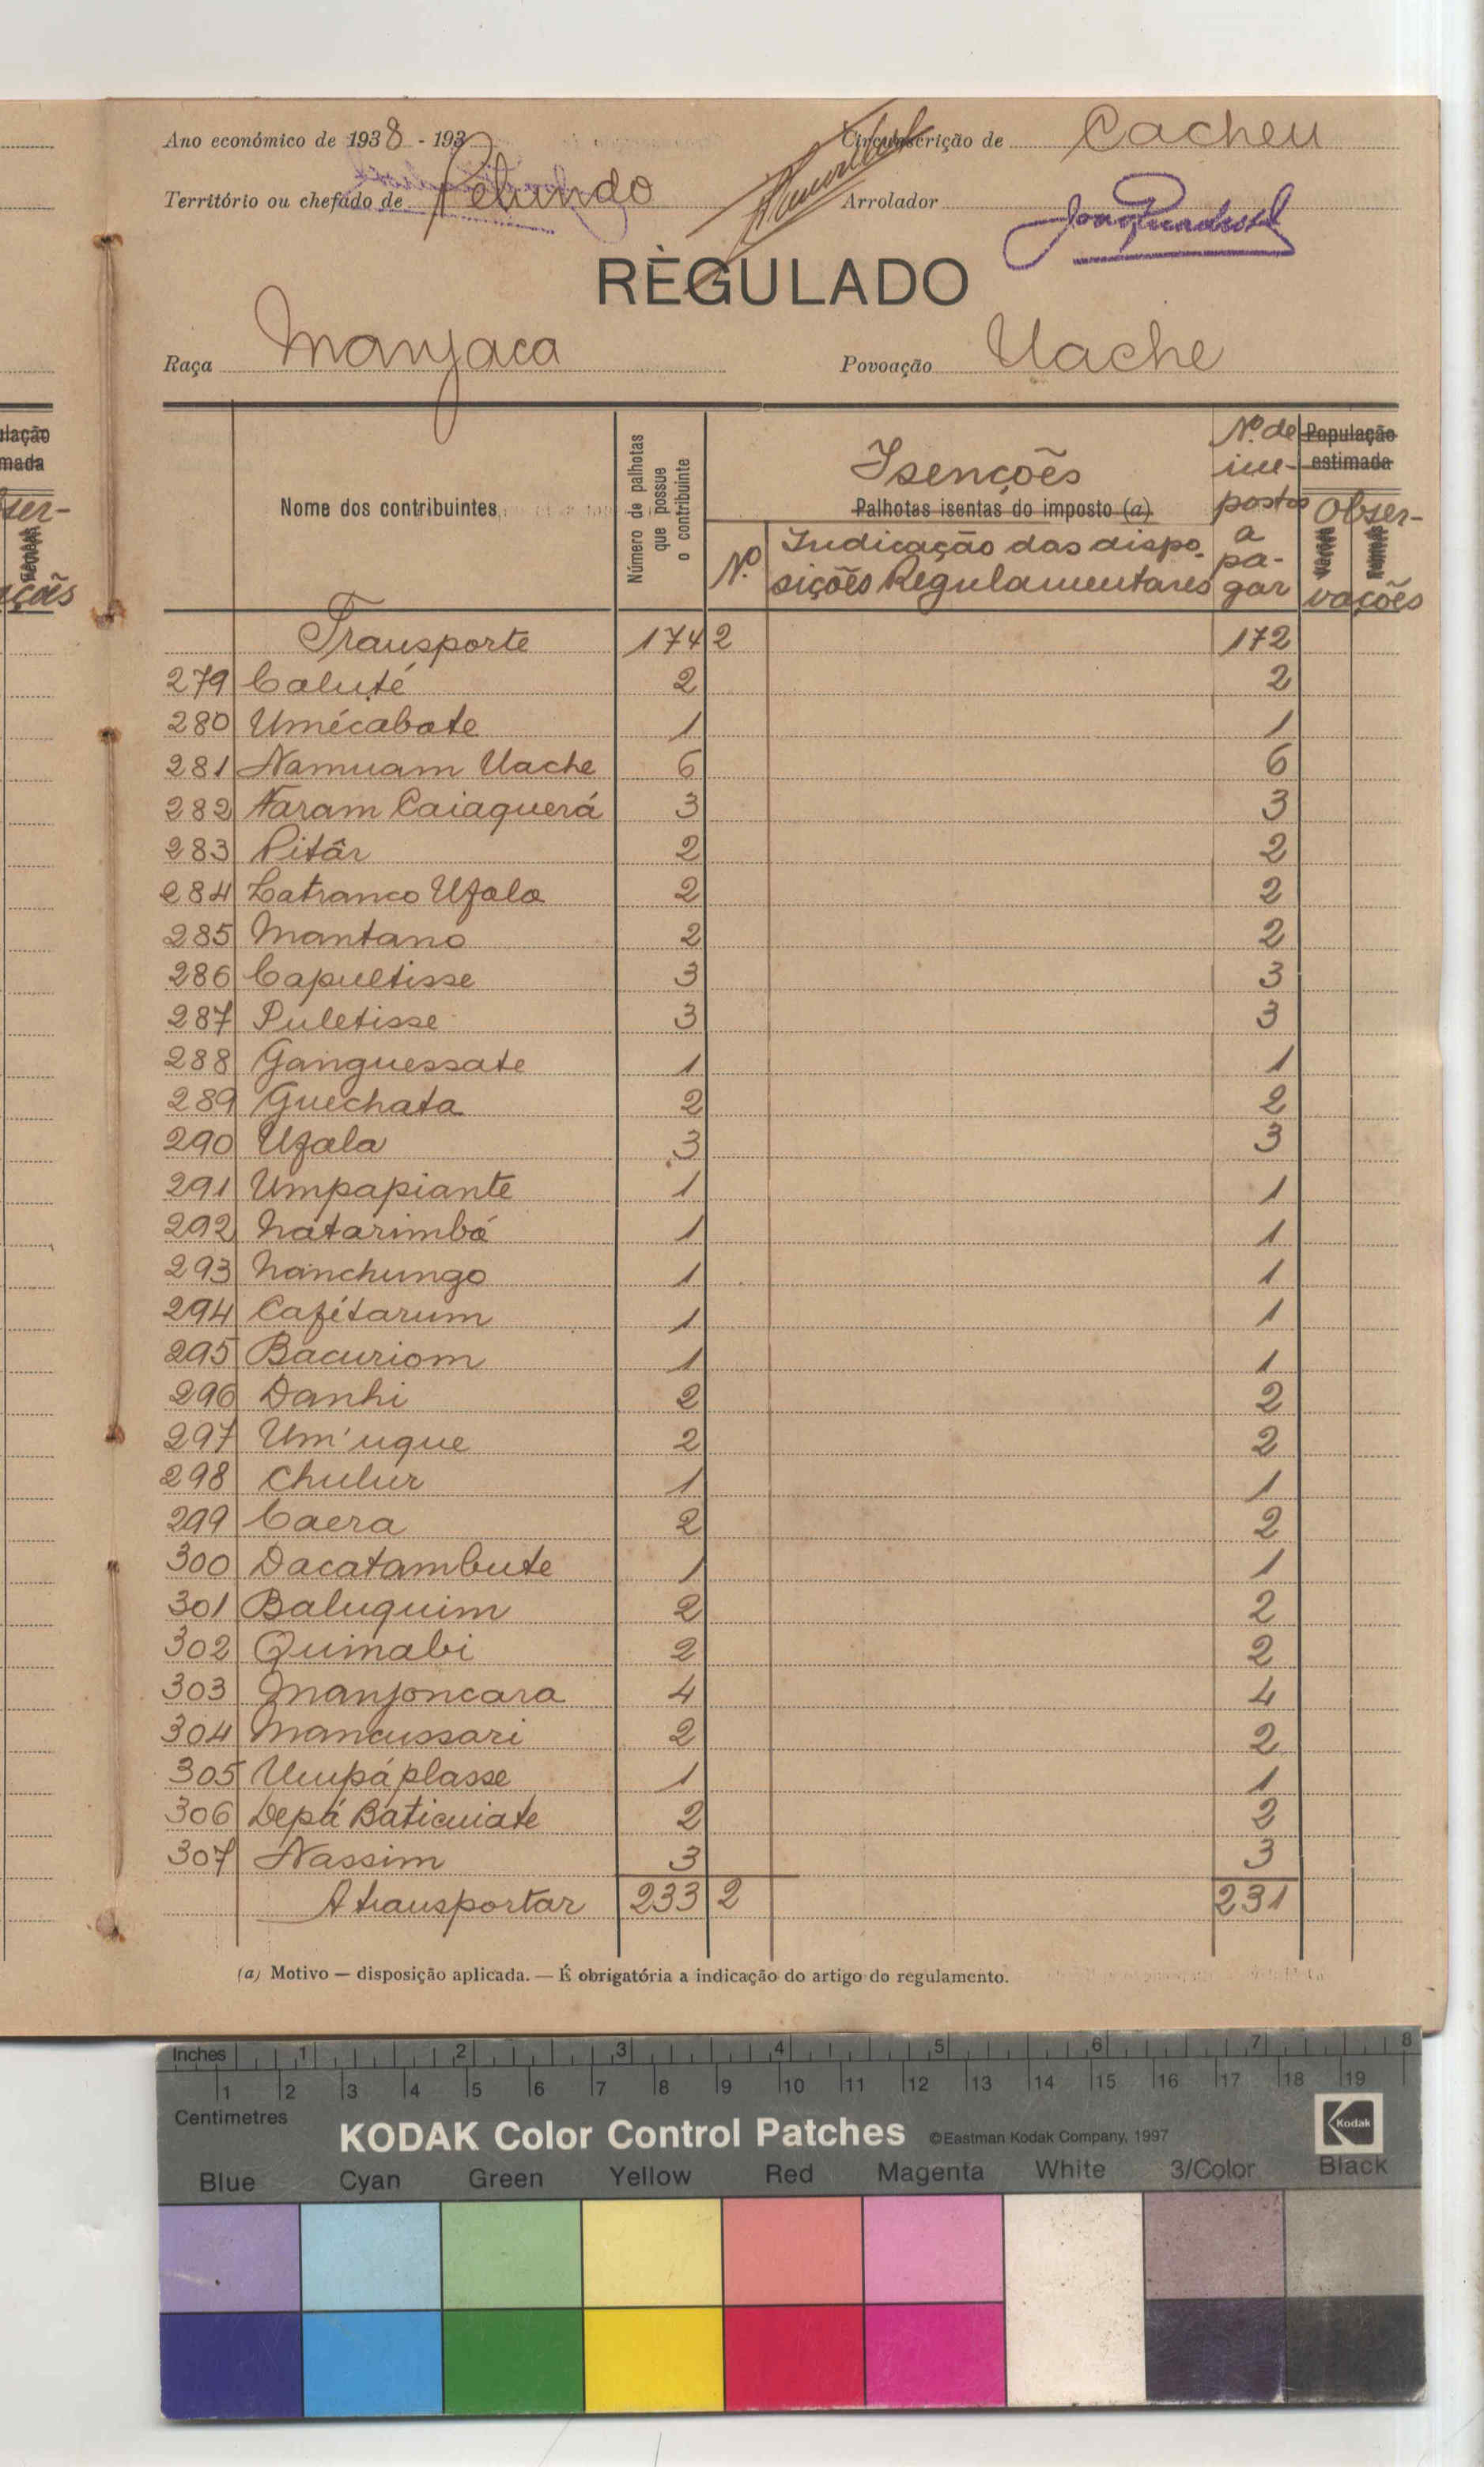 Ano económico de 1938 - 193
Circunscrição de Cacheu
Território ou chefado de Pelundo
Arrolador
RÈGULADO
Raça Manjaca
Povoação Uache
Nome dos contribuintes
Número de palhotas que possue o contribuinte
Isenções
Palhotas isentas do imposto (a)
Nº
Indicação das dispo-
sições Regulamentares
Nº de
im-
postos
a
pa-
gar
População
estimada
Obser-
vações
lação
mada
ser-
ações
Transporte 174 2 172
279 Caluté 2 2
280 Umécabote 1 1
281 Namuam Uache 6 6
282 Naram Caiaquerá 3 3
283 Pitâr 2 2
284 Latranco Ufala 2 2
285 Mantano 2 2
286 Capultisse 3 3
287 Puletisse 3 3
288 Ganguessate 1 1
289 Guechata 2 2
290 Ufala 3 3
291 Umpapiante 1 1
292 Natarimbá 1 1
293 Nanchungo 1 1
294 Cafétarum 1 1
295 Bacuriom 1 1
296 Danhi 2 2
297 Um'uque 2 2
298 Chulur 1 1
299 Caera 2 2
300 Dacatambute 1 1
301 Baluquim 2 2
302 Quinabi 2 2
303 Manjoncara 4 4
304 Mancussari 2 2
305 Umpáplasse 1 1
306 Depá Baticuiate 2 2
307 Nassim 3 3
A transportar 233 2 231
(a) Motivo — disposição aplicada. — É obrigatória a indicação do artigo do regulamento.
Inches 1 2 3 4 5 6 7 8
1 2 3 4 5 6 7 8 9 10 11 12 13 14 15 16 17 18 19
Centimetres
KODAK Color Control Patches ©Eastman Kodak Company, 1997
Kodak
Blue Cyan Green Yellow Red Magenta White 3/Color Black